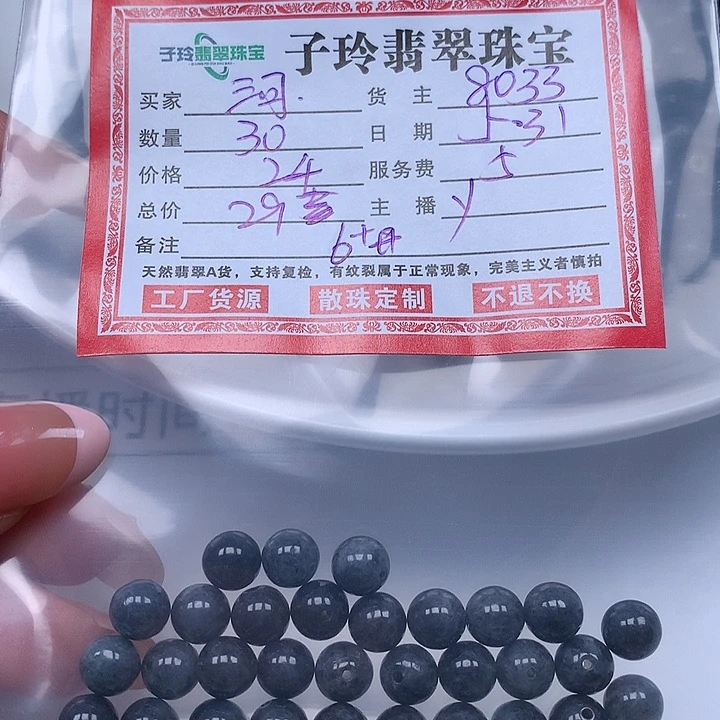 子玲翡翠珠宝 子玲翡翠珠宝
买家 三河. 货主 8033
数量 30 日期 5-31
价格 24 服务费 5
总价 29 主播 y
备注 6+
天然翡翠A货，支持复检，有纹裂属于正常现象，完美主义者慎拍
工厂货源 散珠定制 不退不换
时间